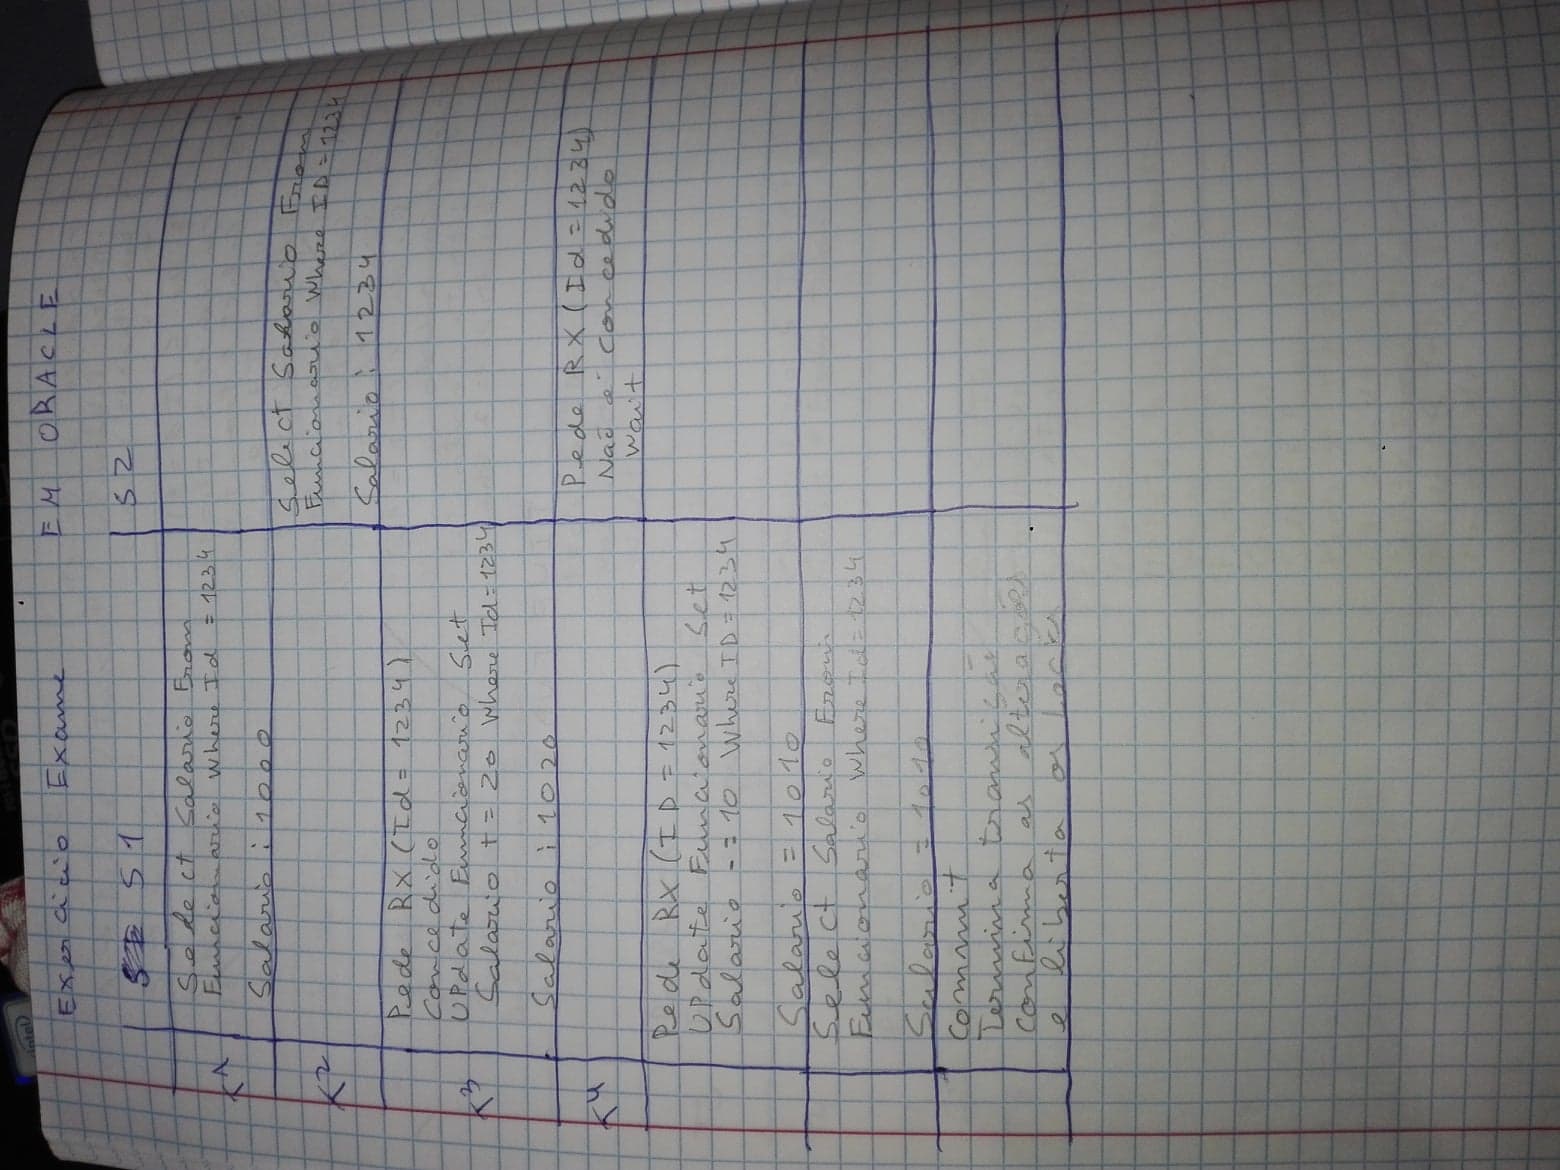 intel
Exercicio Exame EM ORACLE
S1 S2
K1
Select Salario From
Funcionario Where Id = 1234
Salario : 1000
K2
Select Salario From
Funcionario Where ID = 1234
Salario : 1234
K3
Pede RX (Id = 1234)
Concedido
UPdate Funcionario Set
Salario += 20 Where Id = 1234
Salario : 1020
K4
Pede RX (Id = 1234)
Naõ e' concedido
Wait
Pede RX (ID = 1234)
UPdate Funcionario Set
Salario -= 10 Where ID = 1234
Salario = 1010
Select Salario From
Funcionario Where Id = 1234
Salario = 1010
Commit
Termina
Confirma as alterações
e liberta os locks